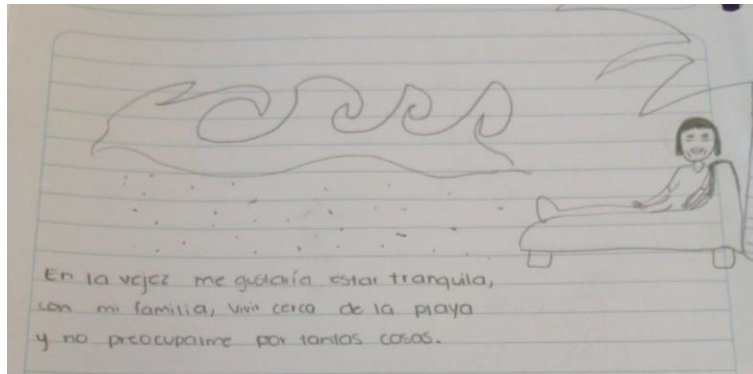 En la vejez me gustaría estar tranquila,
con mi familia, vivir cerca de la playa
y no preocuparme por tantas cosas.